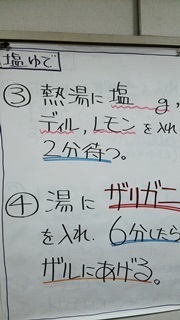 塩ゆで
③ 熱湯に塩 g,
ディル,レモンを入れ
2分待つ。
④ 湯に ザリガニ
を入れ. 6分したら
ザルにあげる。